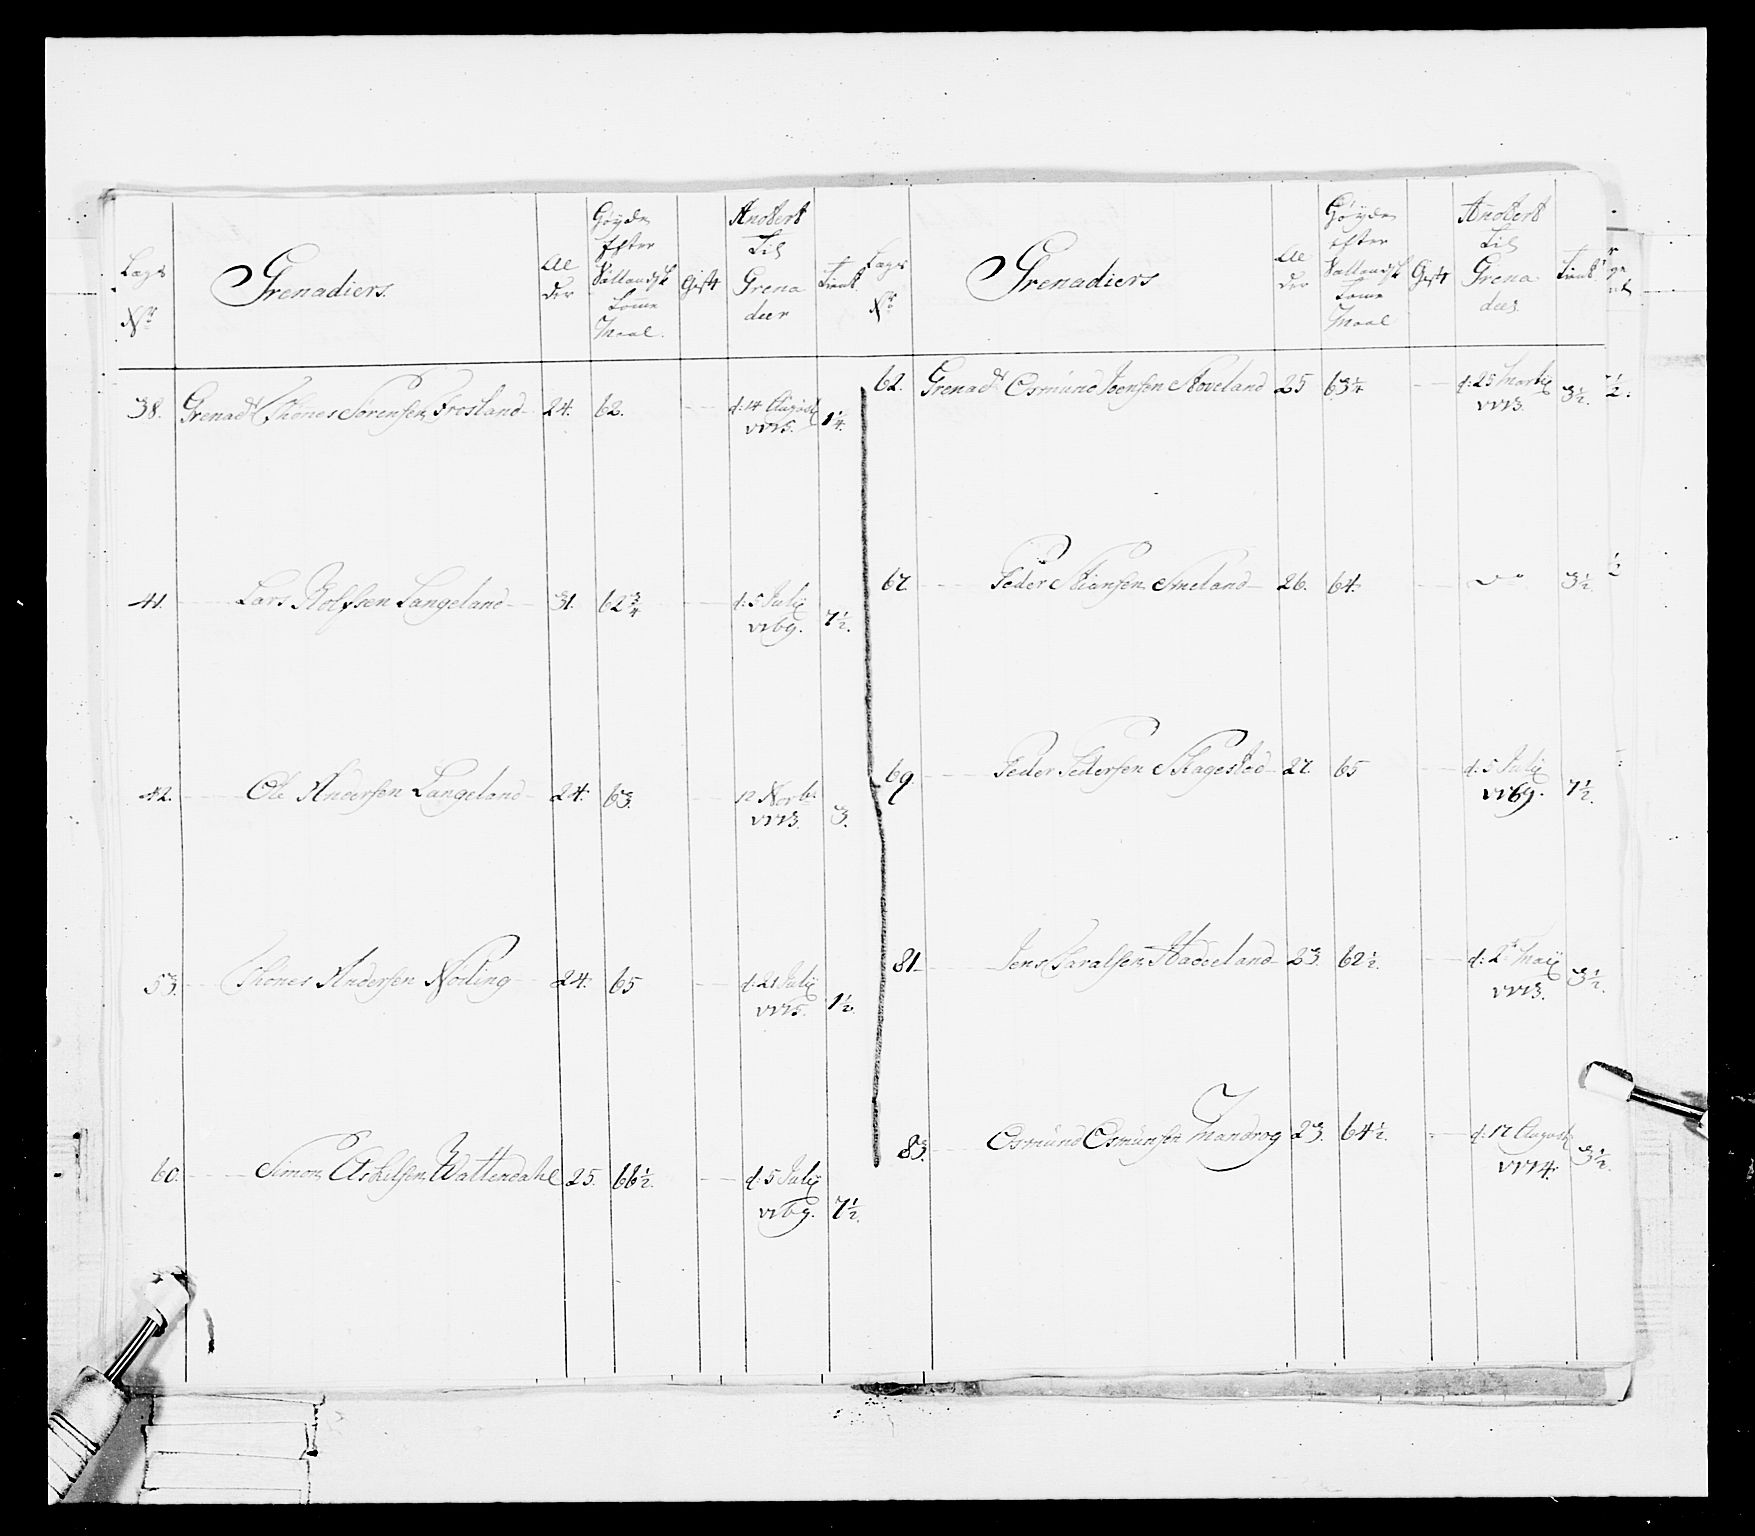 Lægs
Nr
Grenadiers.
Al
der
Høyde
Efter
Sællandsk
Tomme
Maal.
Gift
Andert
Til
Grena
deer
Tient
38. Grenadr Thones Sørensen Frosland 24. 62. d: 14 August 1775. 1 1/4.
41. Lars Rolfssen Langeland 31. 62 3/4 d: 5 Julij 1769. 7 1/2.
42. Ole Andersen Langeland 24. 63. 12 Novbr 1773. 3.
53. Thones Andersen Nøding 24. 65 d: 21 Julij 1775. 1 1/2.
60. Simon Askelsen Wattendahl 25. 66 1/2. d: 5 Julij 1769. 7 1/2.
Lægs
Nr
Grenadiers
Al
der
Høyde
Efter
Sællandsk
Tomme
Maal
Gift
Andert
Til
Grena
deer
Tient
62. Grenadr Osmund Joensen Stoveland 25 63 1/4 d: 25 Martij 1773. 3 1/2.
67. Peder Stiansen Smeland 26. 64. do 3 1/2.
69. Peder Pedersen Skagestad 27. 65 d. 5 Julij 1769. 7 1/2.
81. Jens Taralsen Stadeland 23 62 1/2. d: 2 Maij 1773. 3 1/2.
83. Osmund Osmunsen Mandrog 23. 64 1/2. d: 17 August 1774. 3 1/2.